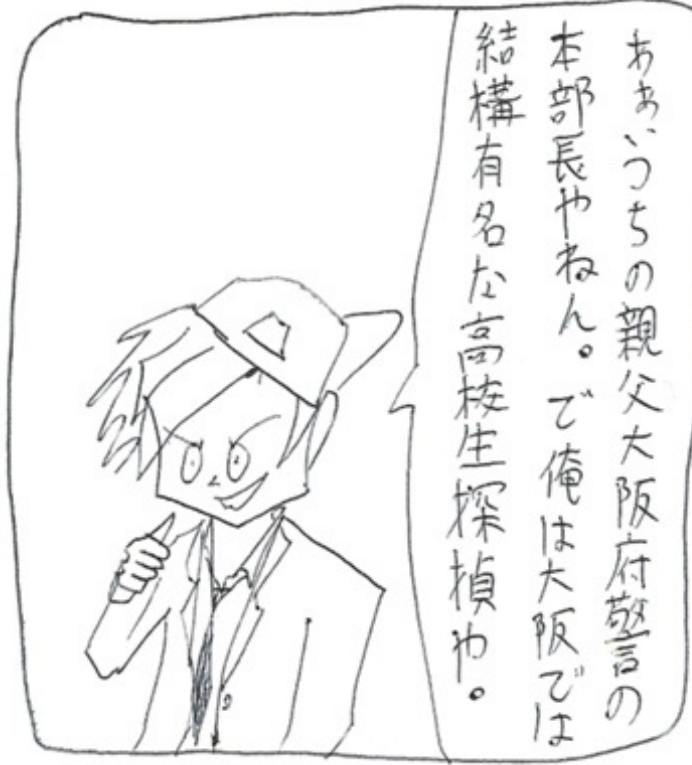 ああ、うちの親父大阪府警の
本部長やねん。で俺は大阪では
結構有名な高校生探偵や。